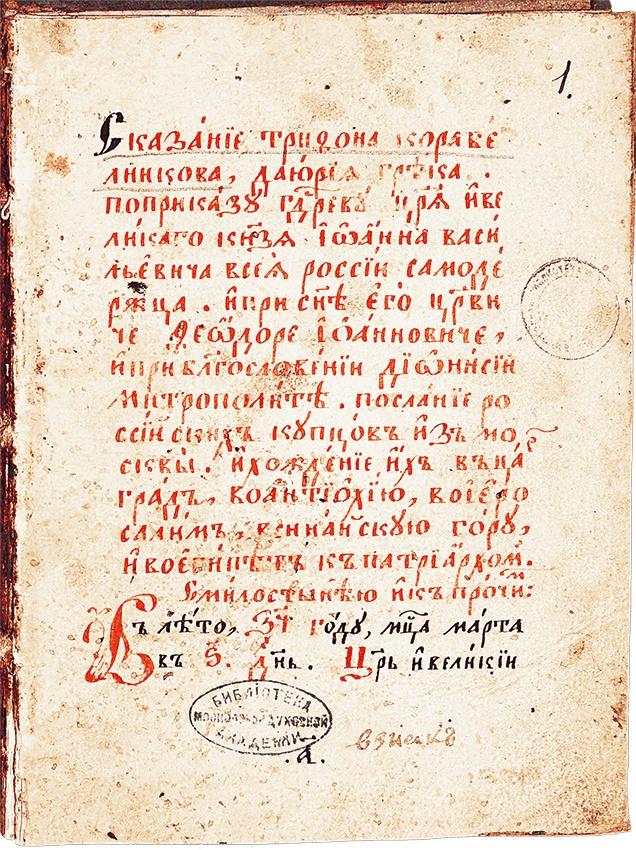 1.
Сказа́нїе три́ѳона корабе́
лникова, да ю́рїѧ гре́ка.
по приказу гдⷭ҇рѧ цр҃ѧ̀ и҆ ве
ликаго кн҃зѧ і҆ѡа́нна васи́
льевича всеѧ̀ россі́и самоде́
ржца. и҆ при сн҃ѣ е҆го̀ цр҃ви
че ѳео́дѡре і҆ѡа́нновиче,
и҆ при бл҃гослове́нїи дїѡни́сїи
митрополи́тѣ. посла́нїе ро
ссі́йскихъ купцо́въ и҆зъ мо
сквы̀. и҆ хожде́нїе и҆́хъ въ ца́
гра́дъ, во а҆нтїо́хїю, во і҆е́ро
сали́мъ, в синайскую го́ру,
и҆ во е҆ги́петъ къ патрїа́рхомъ.
с ми́лостынею и҆ къ про́чи:
Въ лѣ́то, году, мц҃а ма́рта
въ ѕ҃. дн҃ь. Цр҃ь и҆ вели́кїи
БИБЛІОТЕКА
МОСКОВСКОЙ ДУХОВНОЙ
АКАДЕМІИ
.а.